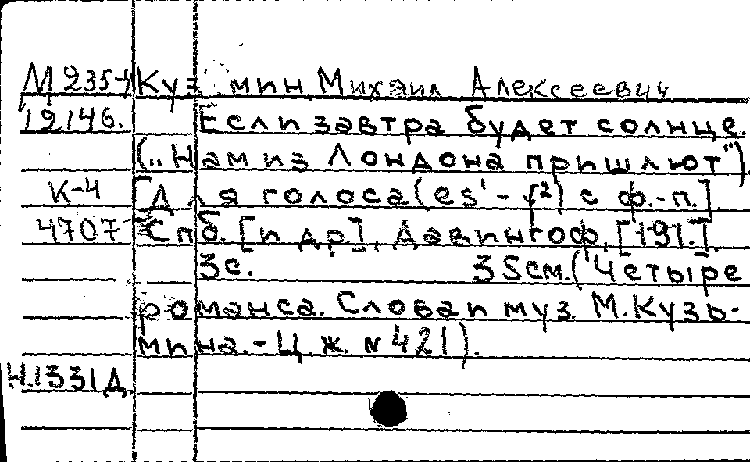 М 235-4 Кузмин, Михаил Алексеевич
12146. Если завтра будет солнце.
(„Нам из Лондона пришлют")
К-4 [Для голоса (es'-f²) с ф.-п.]
4707 Спб. [и др], Давингоф, [191.].
3с. 35см. (Четыре
романса. Слова и муз. М. Кузь-
мина. - Ц. ж. N 421).
Н.1331Д.